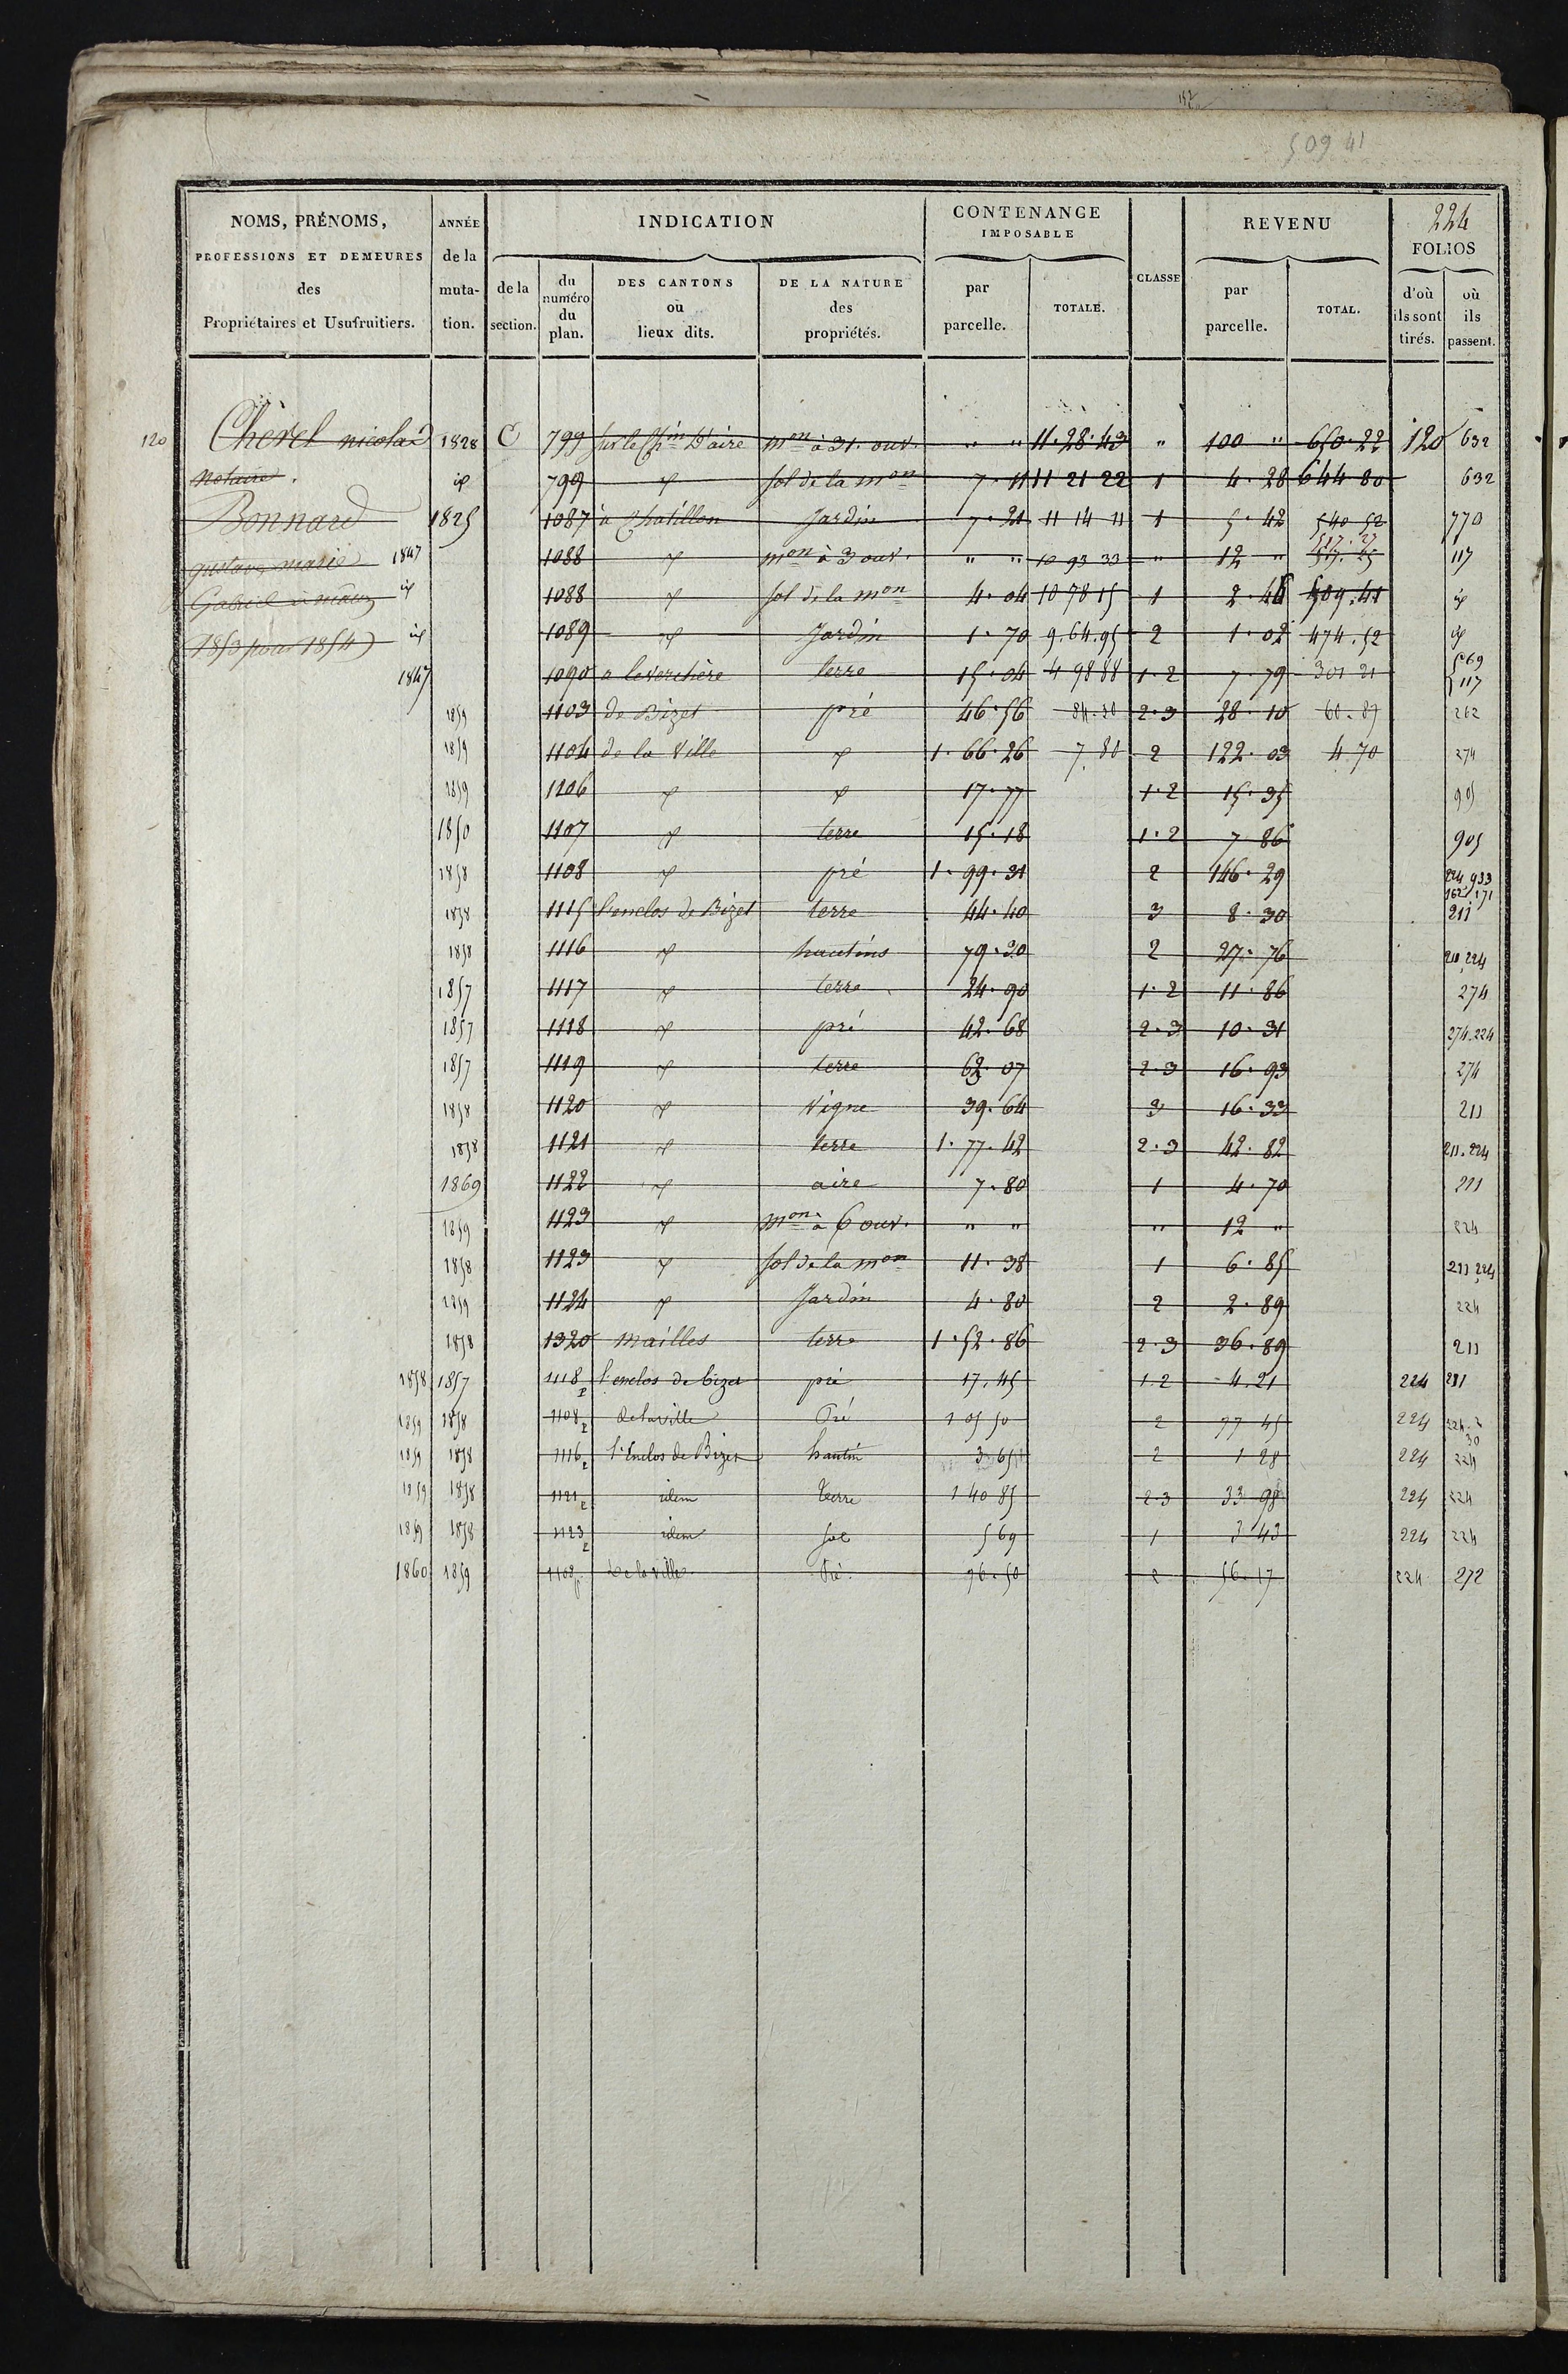 152
509 41
224
NOMS, PRÉNOMS, PROFESSIONS ET DEMEURES des Propriétaires et Usufruitiers.
ANNÉE de la muta- tion.
INDICATION
de la section.
du numéro du plan.
DES CANTONS ou lieux dits.
DE LA NATURE des propriétés.
CONTENANCE IMPOSABLE
par parcelle.
TOTALE.
CLASSE
REVENU
par parcelle.
TOTAL.
FOLIOS
d'où ils sont tirés.
où ils passent.
120 Cherel nicolas 1828 C 799 Sur le Ch.in D'aire m.on à 31. ouv. " " 11.28.43 " 100 " 650.22 120 632
Notaire. id 799 id Sol de la m.on 7.11 11 21 22 1 4.28 644 80 632
Bonnard 1825 1087 à Chatillon Jardin 7.21 11 14 11 1 5.42 540 52 770
517.27
gustave marie 1847 1088 id m.on à 3 ouv. " " 10 93 33 " 12 " 517.25 117
Gabriel id 1088 id Sol de la m.on 4.04 10 78 15 1 2.46 509.41 id
(1853 pour 1854) id 1089 id Jardin 1.70 9.64.95 2 1.02 474.52 id
1847 1090 terre 15.04 4 98 88 1.2 7.79 301 21 569 117
1859 1103 de Bizet pré 46.56 84.30 2.3 28.10 60.87 262
1859 1104 de la Ville id 1.66.26 7.80 2 122.03 4 70 274
1859 1106 id id 17.77 1.2 15.35 905
1850 1107 id terre 15.18 1.2 7 86 905
1858 1108 id pré 1.99.31 2 146.29 224 933
162.171
1858 1115 l'enclos de Bizet terre 44.40 3 8.30 211
1858 1116 id hautins 79.30 2 27.76 211.224
1857 1117 id terre 24.90 1.2 11.86 274
1857 1118 id pré 42.68 2.3 10.31 274.224
1857 1119 id terre 62.07 2.3 16.93 274
1858 1120 id Vigne 39.64 3 16.33 211
1858 1121 id terre 1.77.42 2.3 42.82 211.224
1869 1122 id aire 7.80 1 4.70 211
1859 1123 id m.on à 6 ouv. " " " 12 " 224
1858 1123 id Sol de la m.on 11.38 1 6.85 211 224
1859 1124 id Jardin 4.80 2 2.89 224
1858 1320 mailles terre 1.52.86 2.3 36.89 211
1858 1857 1118 p l'enclos de bizet pré 17.45 1.2 4.21 224 211
1859 1858 1108 p de la ville Pré 1 05 50 2 77 45 224
1859 1858 1116 p l'Enclos de Bizet hautin 3 65 2 1 28 224 224
1859 1858 1121 p idem Terre 1 40 85 2.3 33 98 224 224
1859 1858 1123 p idem Sol 5 69 1 3 43 224 224
1860 1859 1108 p de la Ville Pré 76.50 2 56.17 224 272